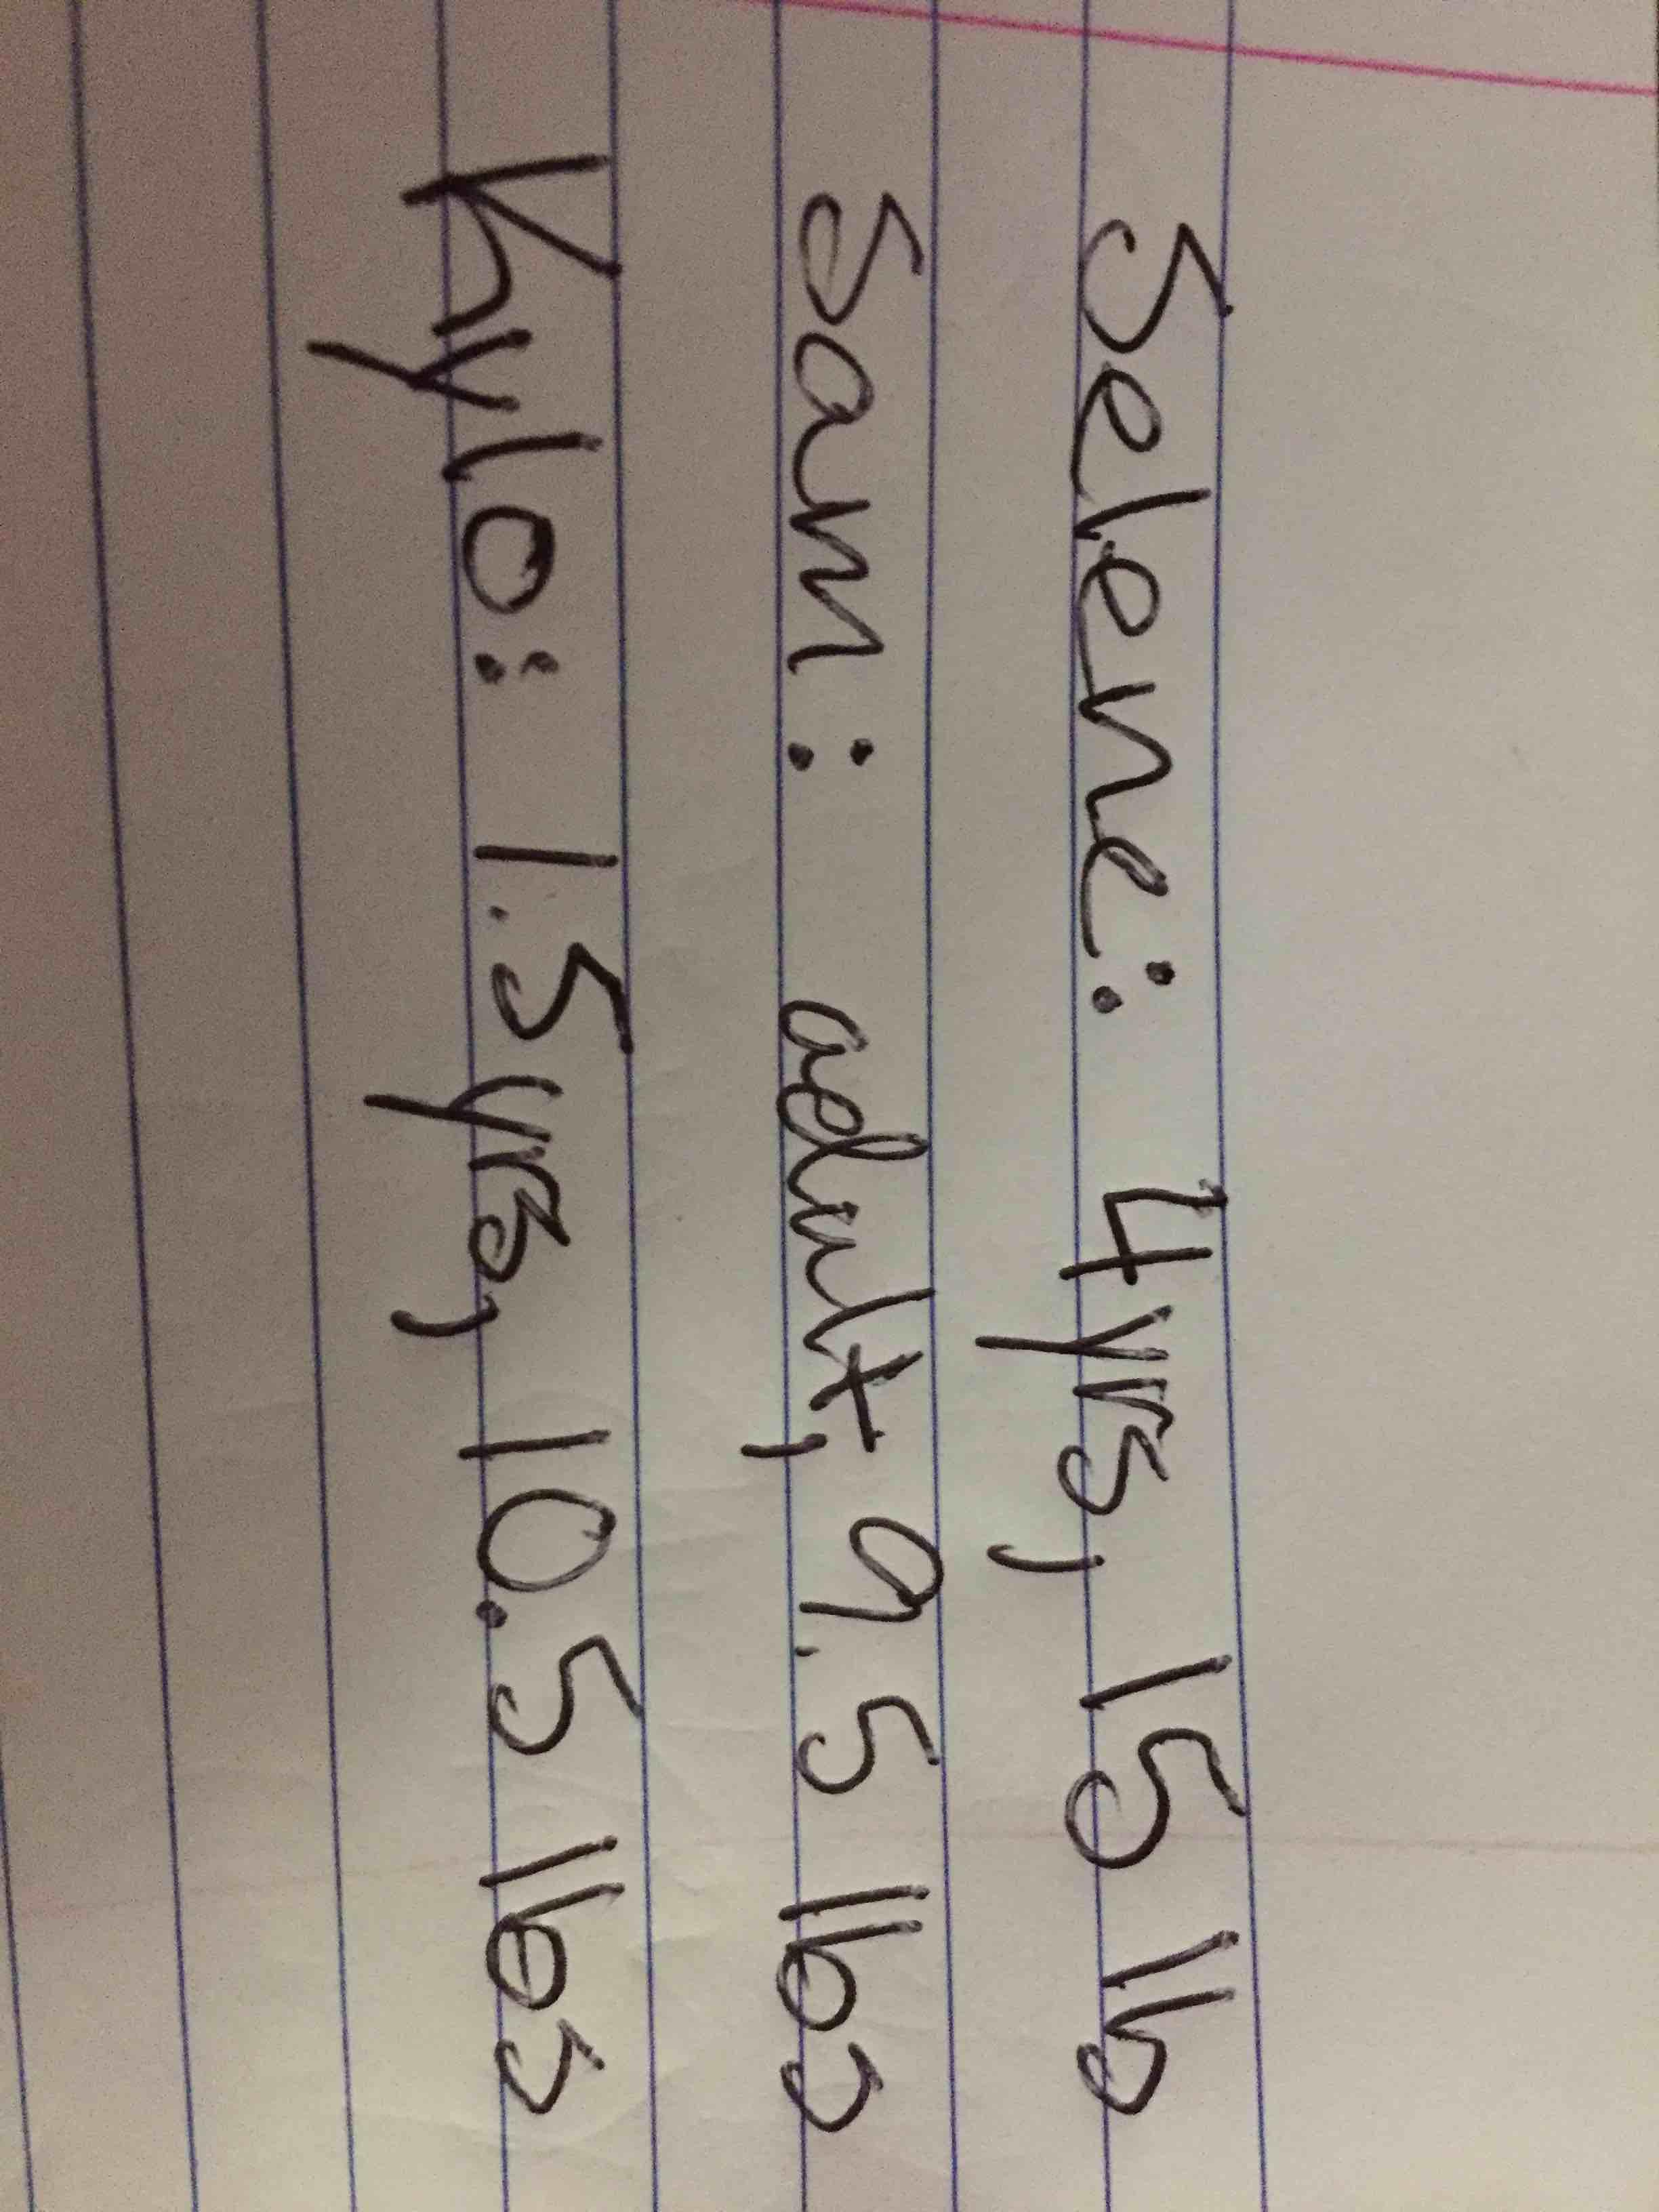 Selene: 4yrs, 15 lb
Sam: adult, 9.5 lbs
Kylo: 1.5yrs, 10.5 lbs